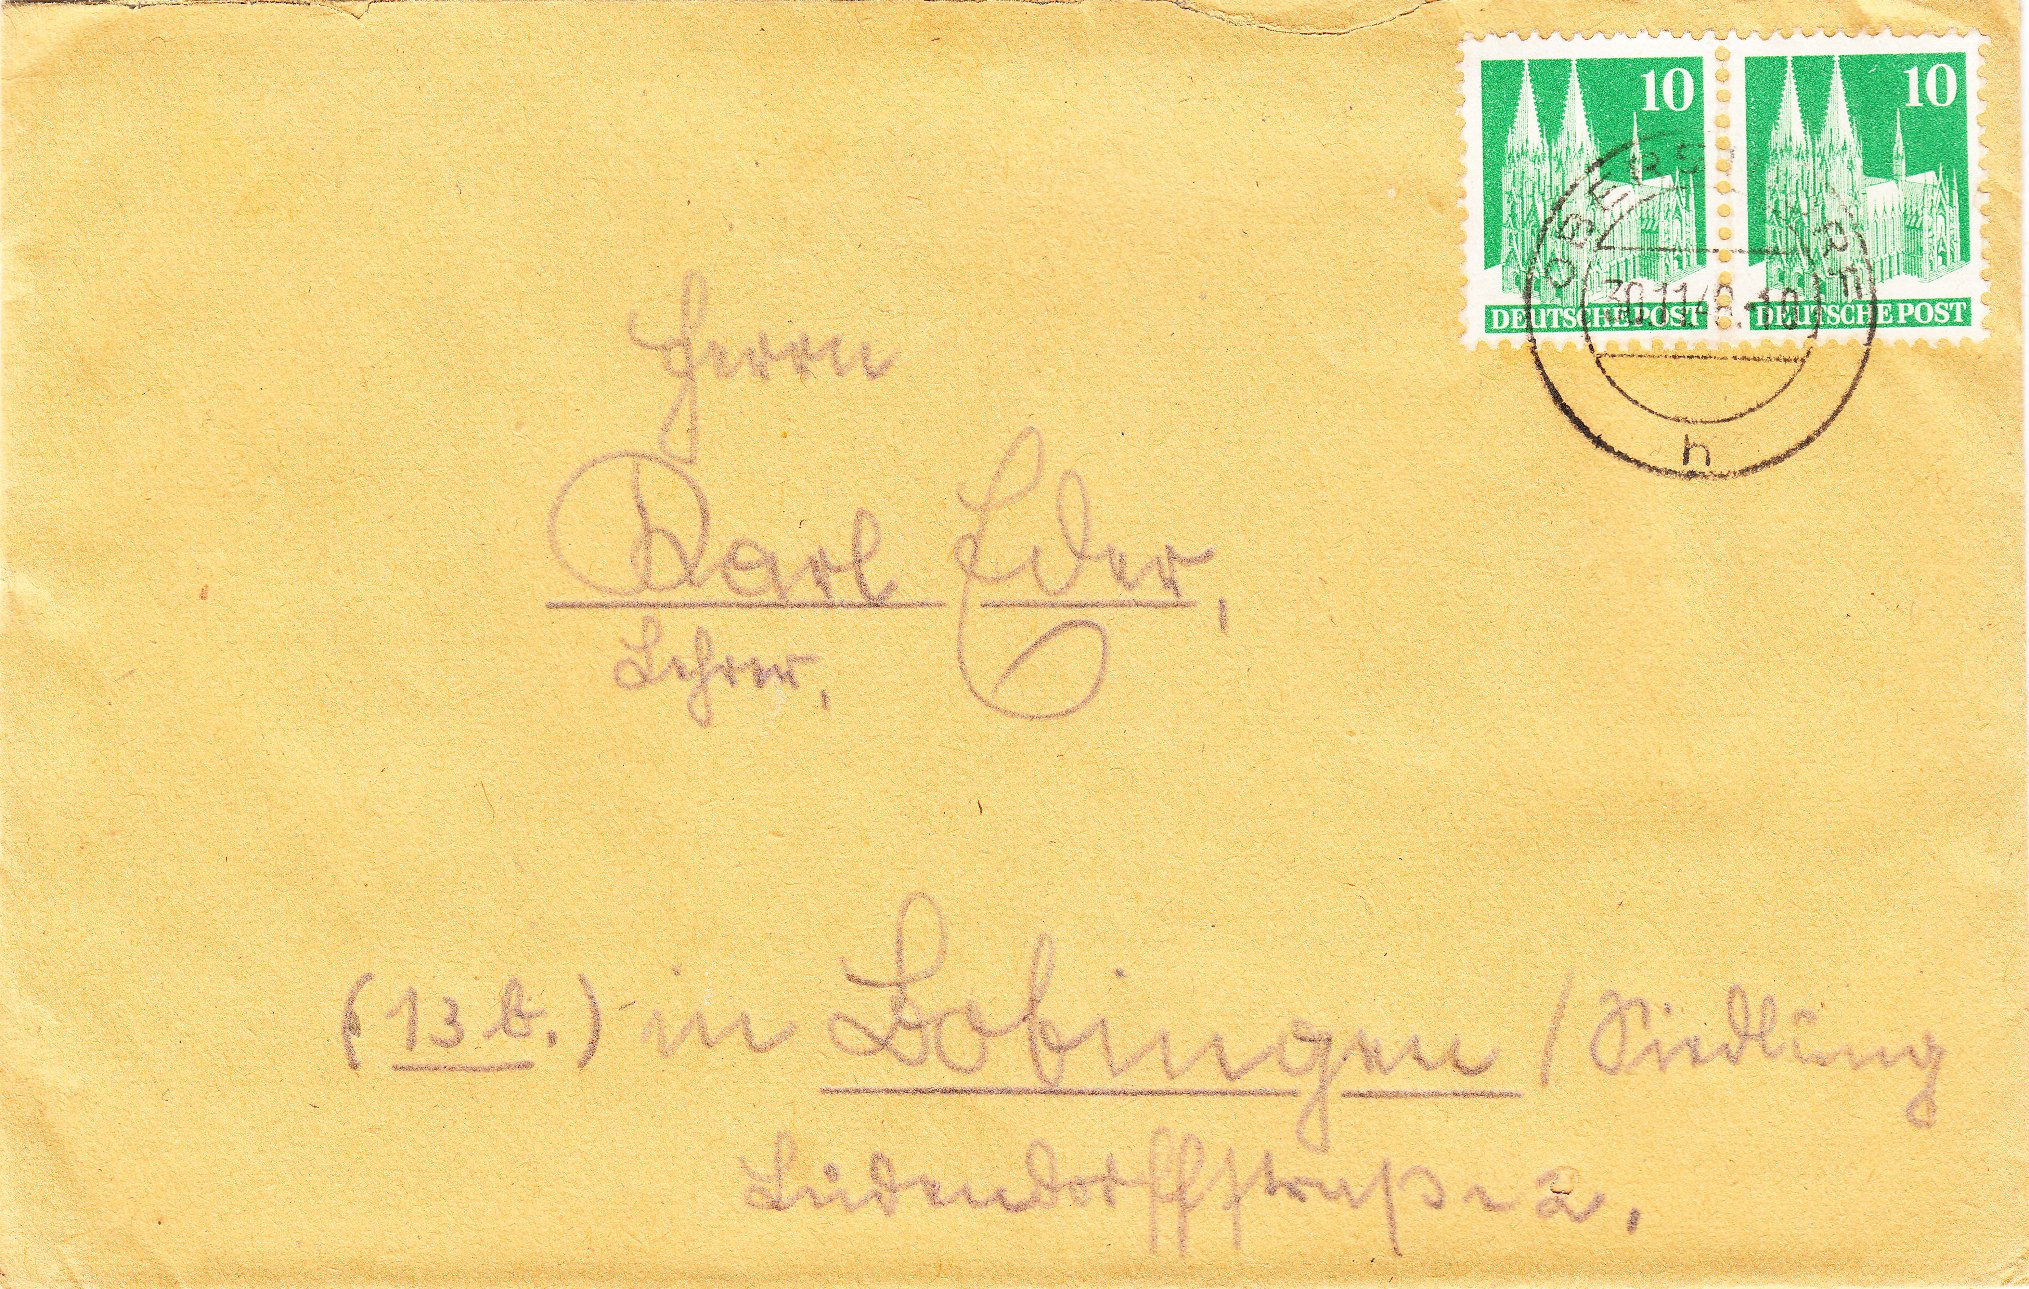 10 10
DEUTSCHE POST DEUTSCHE POST
30.11.48.-10
h
Herrn
Karl Eder,
Lehrer,
(13 b.) in Bobingen / Siedlung
Ludendorffstraße 2.